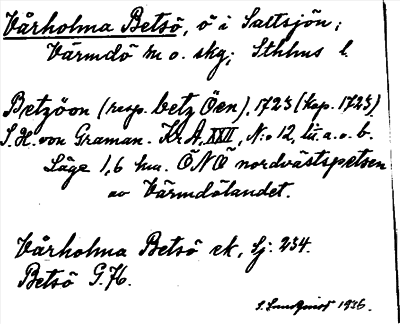 Vårholma Betsö, ö i Saltsjön;
Värmdö sn o. skg; Sthlms l.
Betzöon (resp. betz Öen), 1723 (kop. 1723)
S. H. von Graman. Kr A, XXII, N:o 12, lit. a. o. b.
Läge 1,6 km. ÖNÖ nordvästspetsen
av Värmdölandet.
Vårholma Betsö ek, Sj: 234.
Betsö G. 76.
1936.